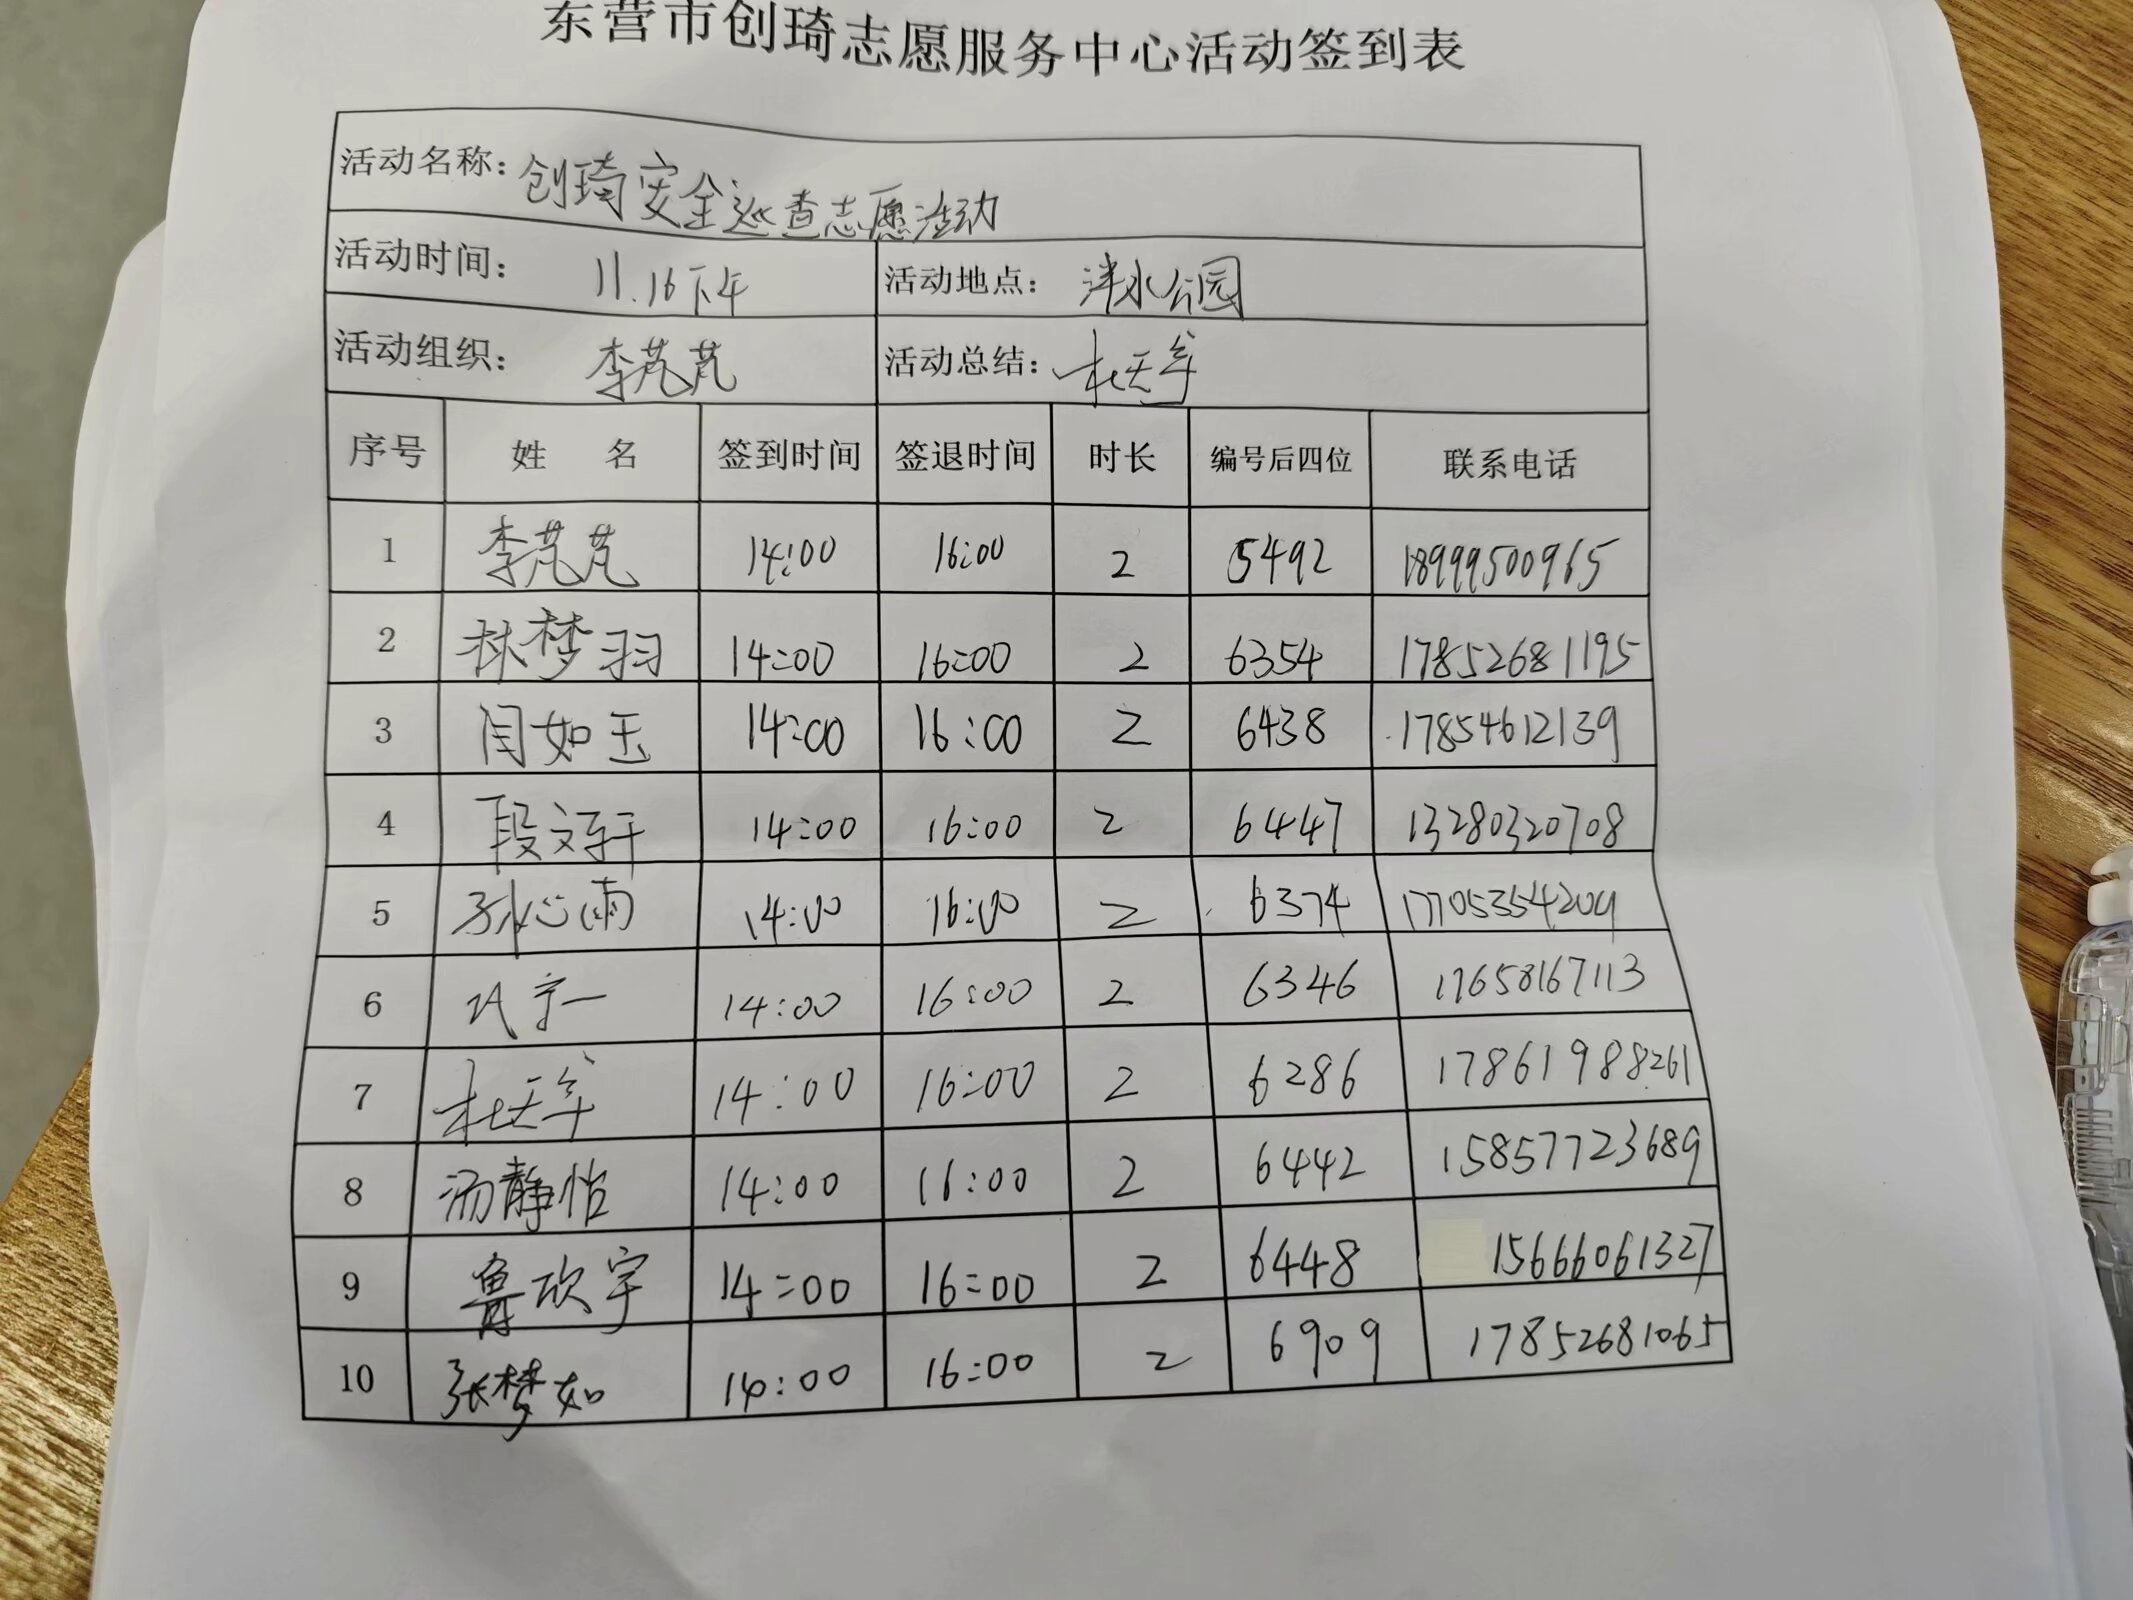 东营市创琦志愿服务中心活动签到表
活动名称：创琦安全巡查志愿活动
活动时间：11.16下午 活动地点：泮水公园
活动组织：李芃芃 活动总结：杜天军
序号 姓名 签到时间 签退时间 时长 编号后四位 联系电话
1 李芃芃 14:00 16:00 2 5492 18999500965
2 林梦羽 14:00 16:00 2 6354 17852681195
3 闫如玉 14:00 16:00 2 6438 17854612139
4 段文轩 14:00 16:00 2 6447 13280320708
5 孙心雨 14:00 16:00 2 6374 17705354209
6 14:00 16:00 2 6346 17658167113
7 杜天军 14:00 16:00 2 6286 17861988261
8 汤静怡 14:00 16:00 2 6442 15857723689
9 鲁欣宇 14:00 16:00 2 6448 15666061327
10 张梦如 14:00 16:00 2 6909 17852681065